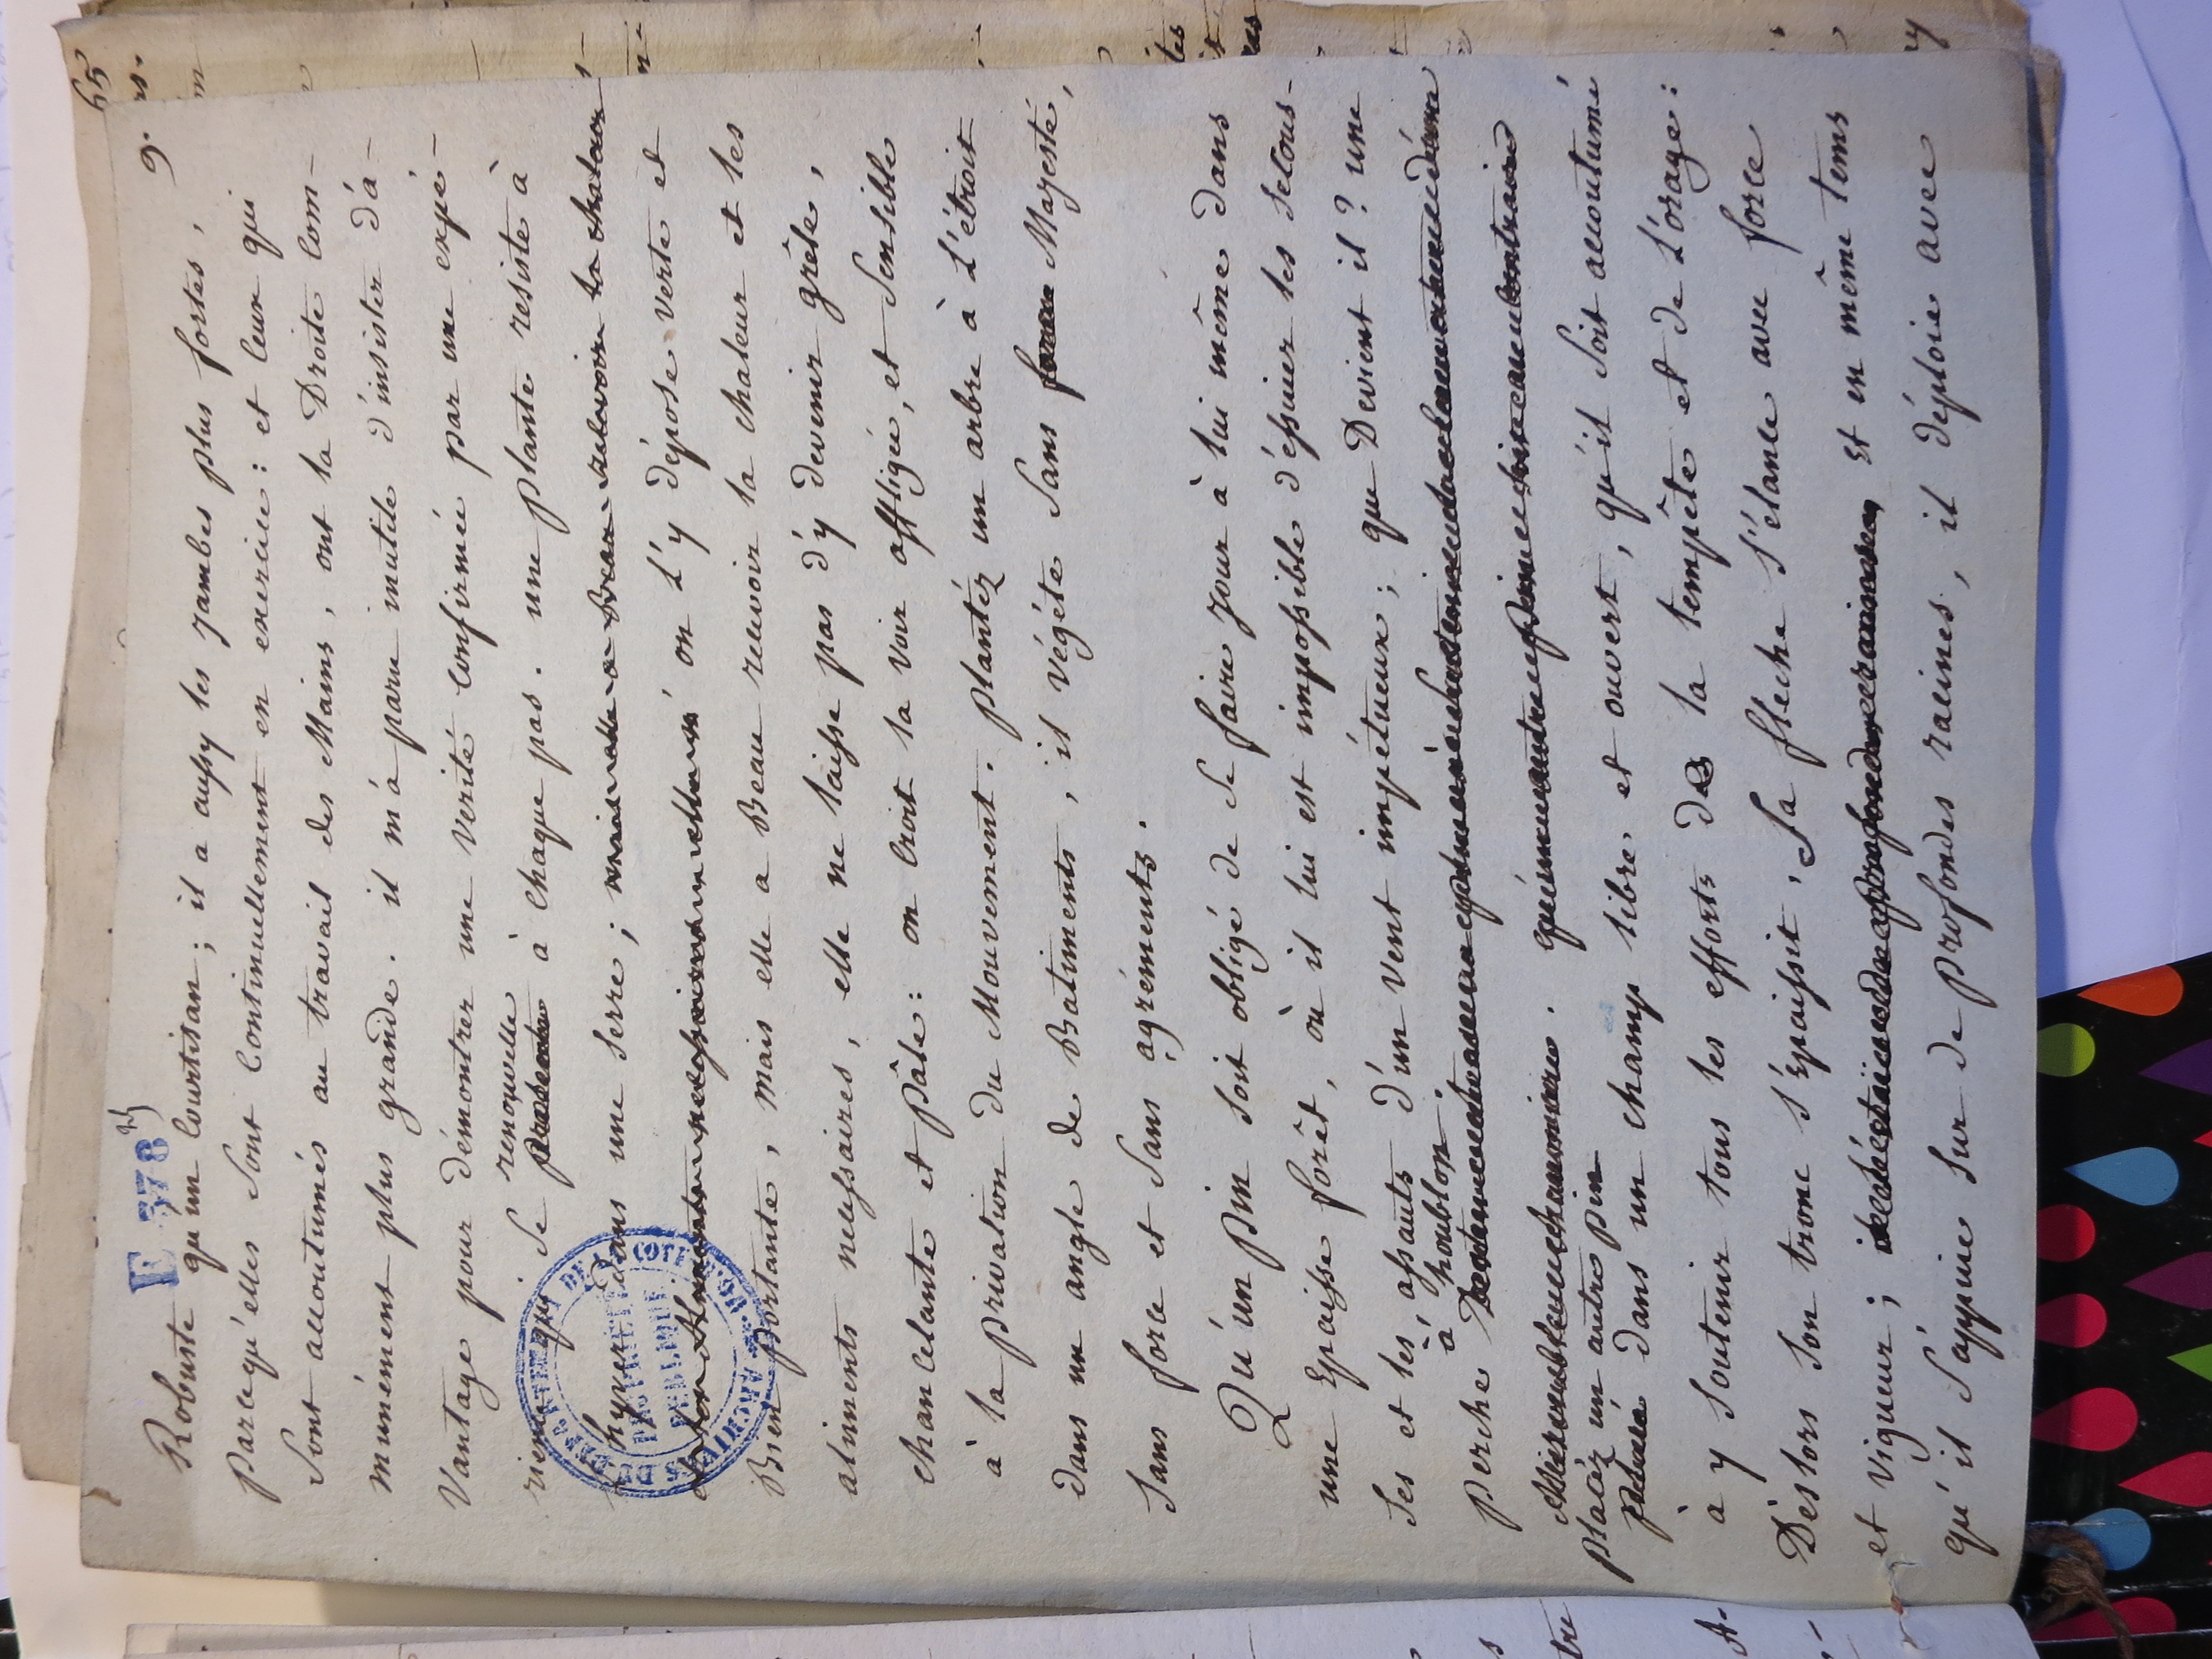 9.
E 378 2)
Robuste qu'un Courtisan ; il a aussy les jambes plus fortes,
parcequ'elles sont Continuellement en exercice : et Ceux qui
sont accoutumés au travail des Mains, ont la Droite Com-
munément plus grande. il m'a paru inutile d'insister da-
Vantage pour démontrer une Verité Confirmée par une expé-
renouvelle
rience qui se à Chaque pas. une plante resiste à
l'hyver dans une Serre ; mais elle a Beau recevoir la chaleur
on l'y dépose verte et
Bien portante, mais elle a Beau recevoir la chaleur et les
aliments necessaires, elle ne laisse pas d'y devenir grêle,
chancelante et pâle : on Croit la voir affligée, et Sensible
à la privation du Mouvement. plantéz un arbre à l'étroit
dans un angle de Batiments, il végéte Sans force Majesté,
Sans force et Sans agréments.
Qu'un pin soit obligé de se faire jour à lui même dans
une Epaisse forêt, où il lui est impossible d'éssuier les secous-
ses et les assauts d'un Vent impétueux ; que Devient il ? une
à houblon.
perche
placéz un autre pin
dans un champ libre, et ouvert, qu'il soit accoutumé
à y soutenir tous les efforts de la tempête et de l'orage :
Dès lors son tronc s'Epaissit, Sa fleche s'élance avec force
et Vigueur ; Et en même tems
qu'il s'appuie sur de profondes racines, il déploie avec
DEPARTEMENT DE LA COTE D'OR
ARCHIVES
PROPRIETE
PUBLIQUE